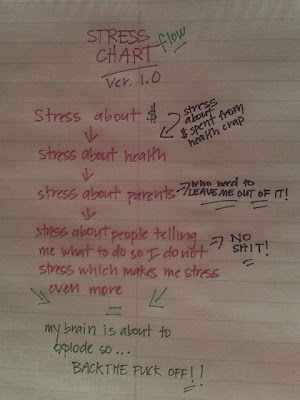 STRESS
flow
CHART
Ver. 1.0
Stress about $
stress
about
$ spent from
health crap
stress about health
stress about parents
who need to
LEAVE ME OUT OF IT!
stress about people telling
me what to do so I do not
stress which makes me stress
even more
NO
SHIT!
=
my brain is about to
explode so...
BACK THE FUCK OFF!!